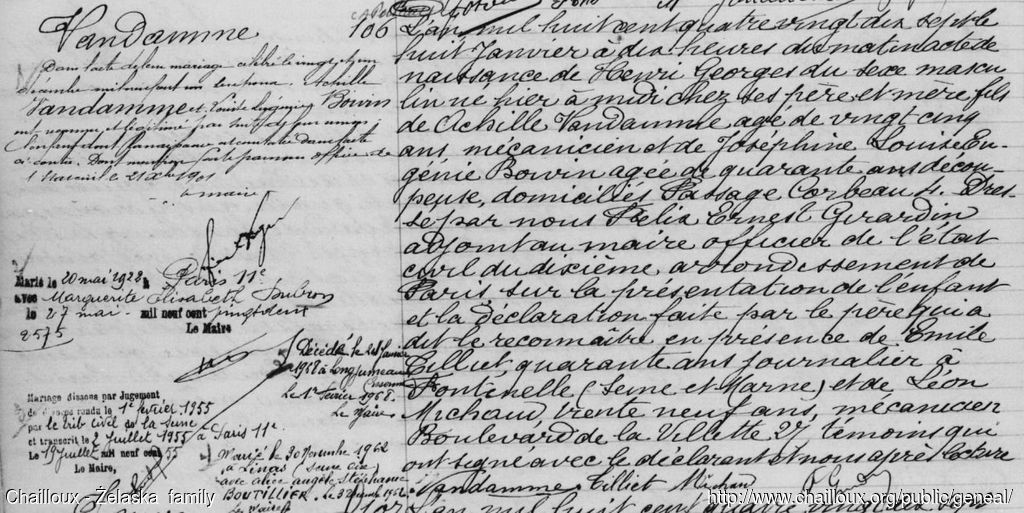 Vandamme
106
L'an mil huit cent quatre vingt dix sept le
huit Janvier à dix heures du matin acte de
naissance de Henri Georges du sexe mascu
lin né hier à midi chez ses père et mère fils
de Achille Vandamme agé de vingt cinq
ans mécanicien et de Joséphine Louise Eu-
génie Bowin agée de quarante ans décou-
peuse, domiciliés Passage Corbeau 4. Dres-
sé par nous Félix Ernest Girardin
adjoint au maire officier de l'état
civil du dixième arrondissement de
Paris sur la présentation de l'enfant
et la déclaration faite par le père qui a
dit le reconnaître en présence de Emile
Tilliet, quarante ans journalier à
Fontenelle (Seine et Marne) et de Léon
Michaud, trente neuf ans, mécanicien
Boulevard de la Villette 27 témoins qui
ont signé avec le déclarant et nous après lecture
Vandamme Tilliet Michau
L'an mil huit cent quatre vingt dix sept
Dans l'acte de leur mariage célébré le vingt et un
décembre mil neuf cent un Achille
Vandamme et Louise Eugénie Bowin
ont reconnu et légitimé
l'enfant dont la naissance est constatée dans l'acte
ci-contre.
le 21 Xbre 1901
Marié le 20 mai 1928 à Paris 11e
avec Marguerite Elisabeth Dubron
le 27 mai mil neuf cent vingt huit
Le Maire
2575
Décédé le 24 Janvier
1968 à Longjumeau
Essonne
le 1er février 1968.
Le Maire.
Mariage dissous par Jugement
rendu le 1er février 1955
par le trib civil de la Seine
et transcrit le 2 juillet 1955 à Paris 11e
Le 19 juillet mil neuf cent 55
Le Maire,
Marié le 30 Novembre 1962
à Linas (Seine et Oise)
avec Alice Angèle Stéphanie
BOUTILLIER.
Le Maire
107
Chailloux - Żelaska family
http://www.chailloux.org/public/geneal/